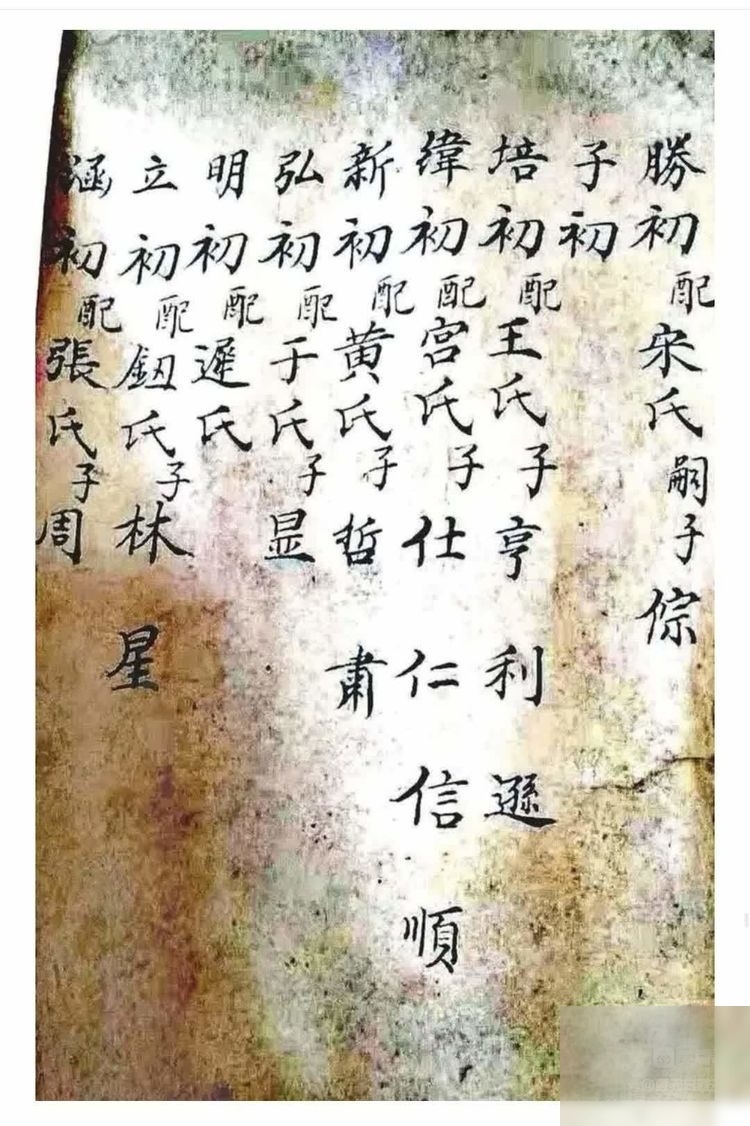 勝初配宋氏嗣子倧
子初
培初配王氏子亨利遜
緯初配宮氏子仕仁信順
新初配黄氏子哲肅
弘初配于氏子显
明初配遲氏
立初配鈕氏子林星
涵初配張氏子周